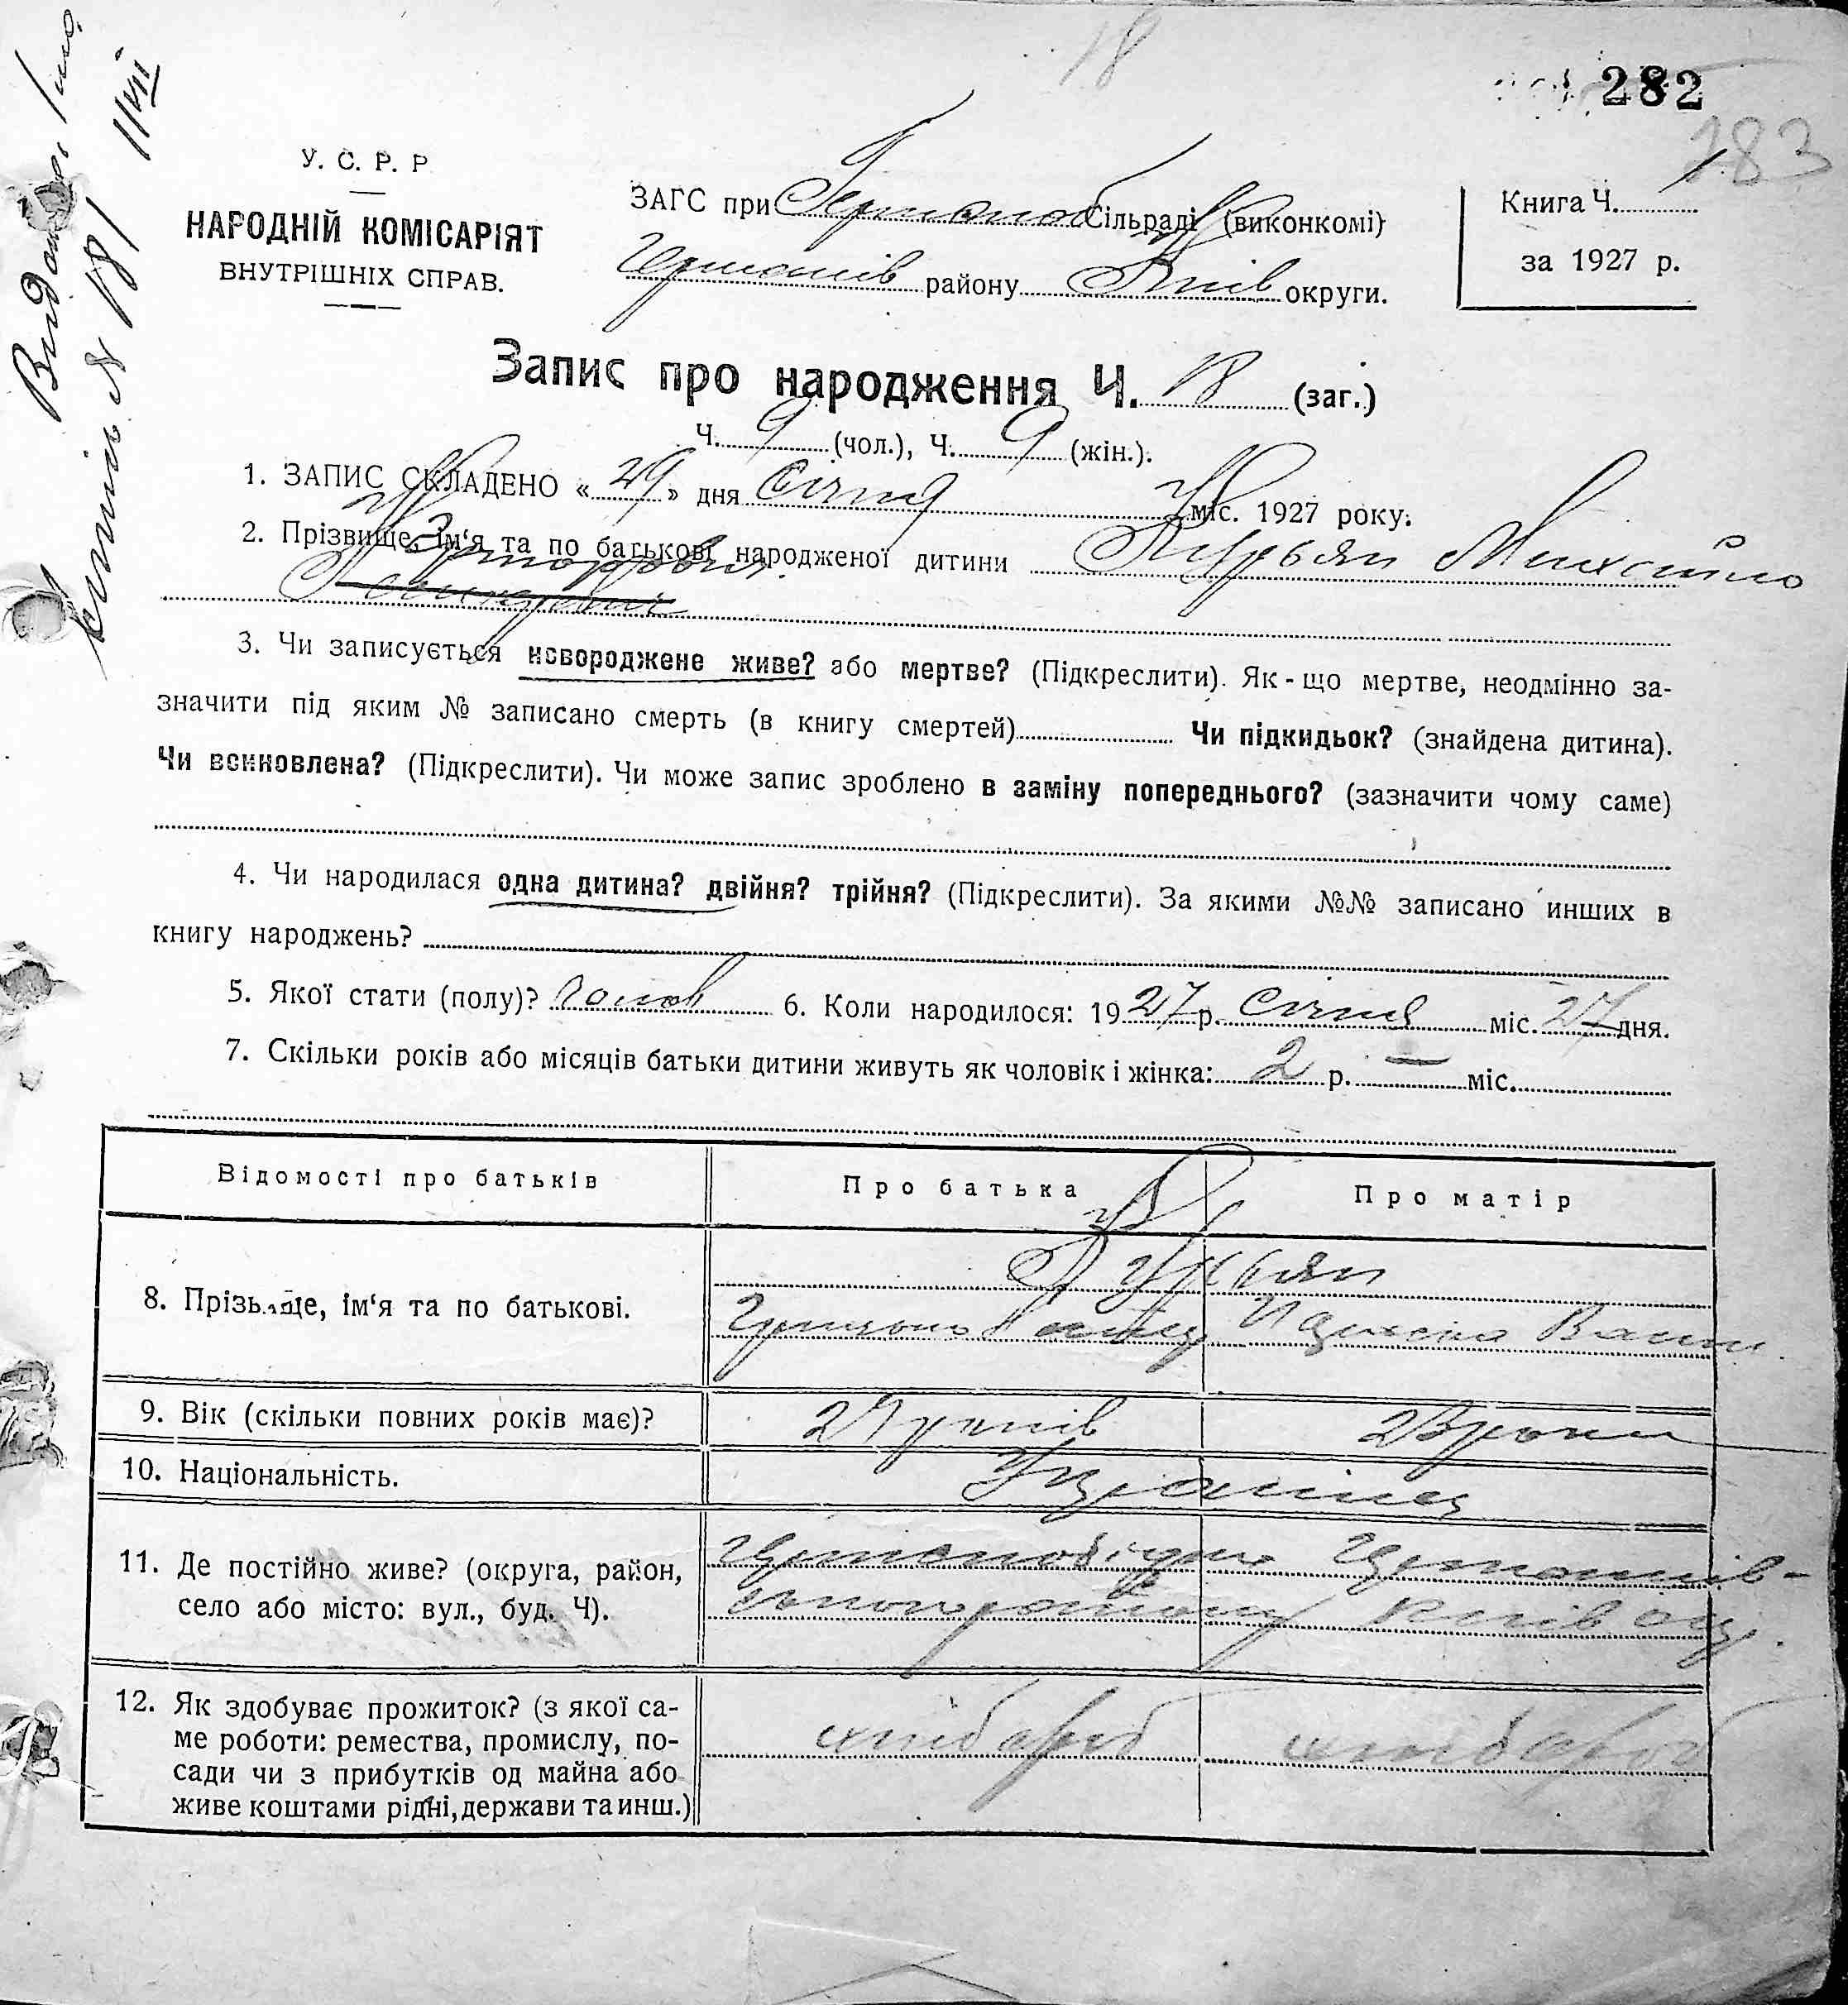 18
282
283
У. С. Р. Р
НАРОДНІЙ КОМІСАРІЯТ
ВНУТРІШНІХ СПРАВ.
ЗАГС при Германов Сільраді (виконкомі)
району Київ округи.
Книга Ч.
за 1927 р.
№ 181
11/VII
Запис про народження Ч. 18 (заг.)
Ч. 9 (чол.), Ч. 9 (жін.).
1. ЗАПИС СКЛАДЕНО « 29 » дня Січня міс. 1927 року.
2. Прізвище, ім'я та по батькові народженої дитини Курьян Михайло
3. Чи записується новороджене живе? або мертве? (Підкреслити). Як-що мертве, неодмінно за-
значити під яким № записано смерть (в книгу смертей) Чи підкидьок? (знайдена дитина).
Чи всиновлена? (Підкреслити). Чи може запис зроблено в заміну попереднього? (зазначити чому саме)
4. Чи народилася одна дитина? двійня? трійня? (Підкреслити). За якими №№ записано инших в
книгу народжень?
5. Якої стати (полу)? чолов 6. Коли народилося: 1927 р. Січня міс. 27 дня.
7. Скільки років або місяців батьки дитини живуть як чоловік і жінка: 2 р. — міс.
Відомості про батьків
Про батька
Про матір
8. Прізвище, ім'я та по батькові.
Курьян
9. Вік (скільки повних років має)?
років
23 роки
10. Національність.
Українц
11. Де постійно живе? (округа, район,
село або місто: вул., буд. Ч).
району Київ окр.
12. Як здобуває прожиток? (з якої са-
ме роботи: ремества, промислу, по-
сади чи з прибутків од майна або
живе коштами рідні, держави та инш.)
хлібароб
хлібароб